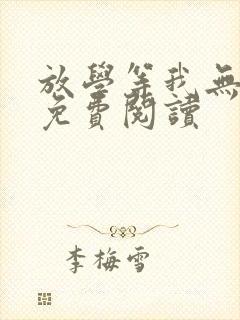 放學等我無
免費閱讀
李梅雪